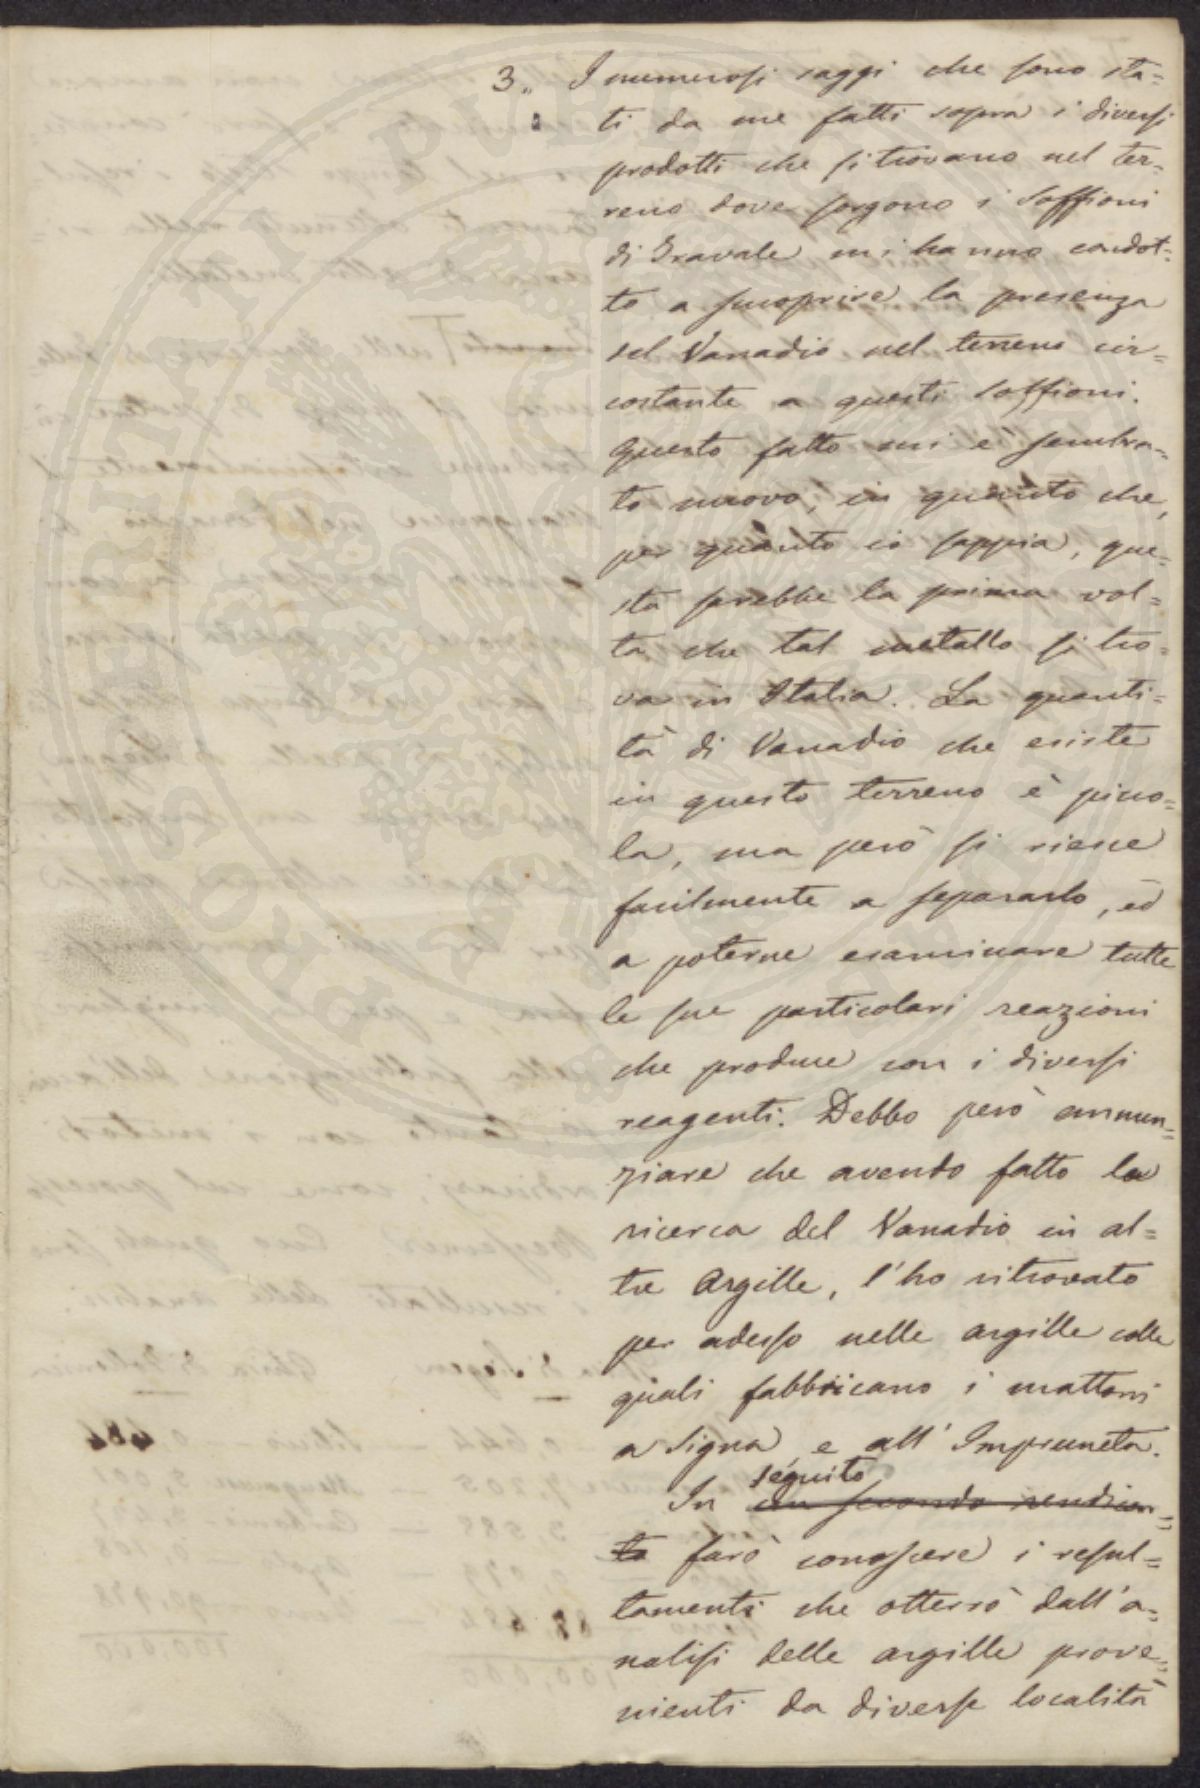 3„ I numerosi saggi che sono sta=
ti da me fatti sopra i diversi
prodotti che si trovano nel ter=
reno dove sorgono i Soffioni
di Travale mi hanno condot=
to a scuoprire la presenza
del Vanadio nel terreno cir=
costante a questi soffioni.
Questo fatto mi è sembra=
to nuovo, in quanto che,
per quanto io sappia, que=
sta sarebbe la prima vol=
ta che tal metallo si tro=
va in Italia. La quanti=
tà di Vanadio che esiste
in questo terreno è picco=
la, ma però si riesce
facilmente a separarlo, ed
a poterne esaminare tutte
le sue particolari reazioni
che produce con i diversi
reagenti. Debbo però annun=
ziare che avendo fatto la
ricerca del Vanadio in al=
tre Argille, l'ho ritrovato
per adesso nelle argille colle
quali fabbricano i mattoni
a Signa e all'Impruneta.
seguito
In un secondo rendicon=
to farò conoscere i resul=
tamenti che otterrò dall'a=
nalisi delle argille prove=
nienti da diverse località